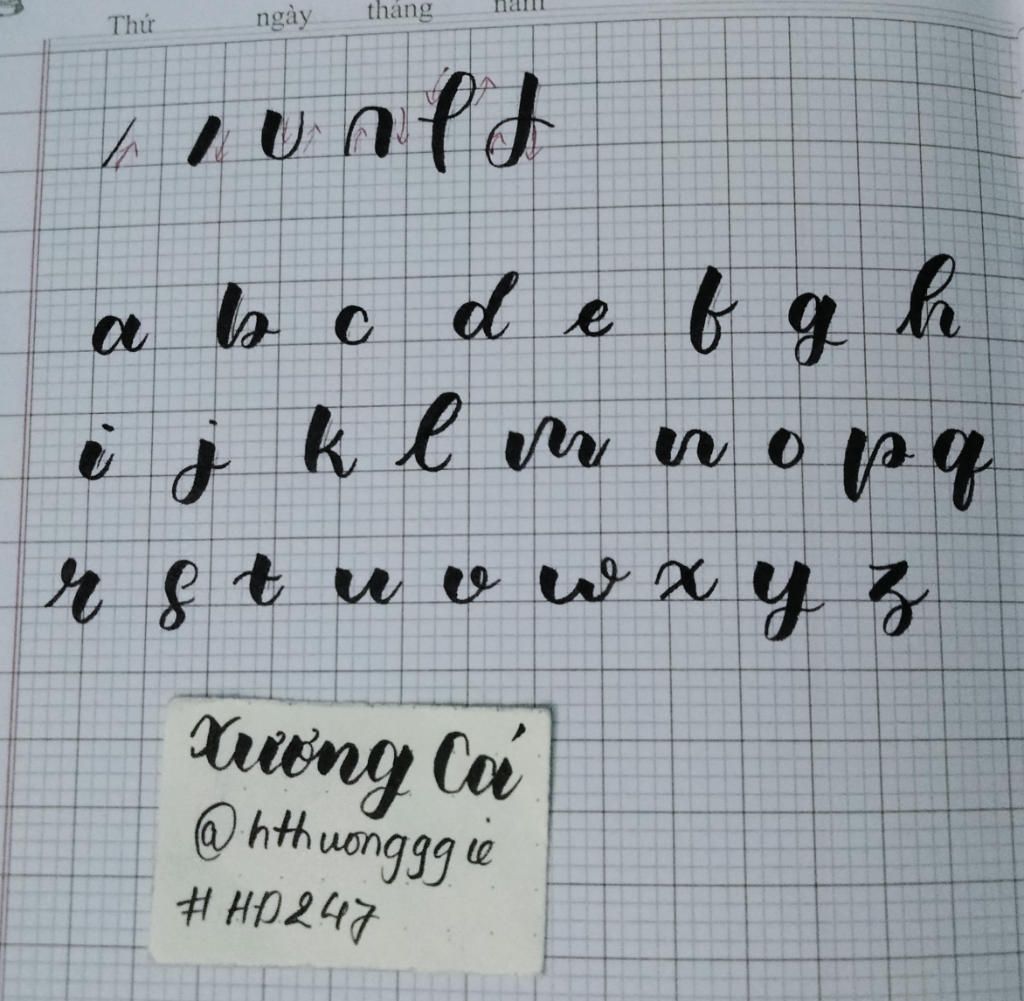 Thứ ngày tháng năm
a b c d e f g h
i j k l m n o p q
r s t u v w x y z
Xương Cá
@hthuongggie
#HD247